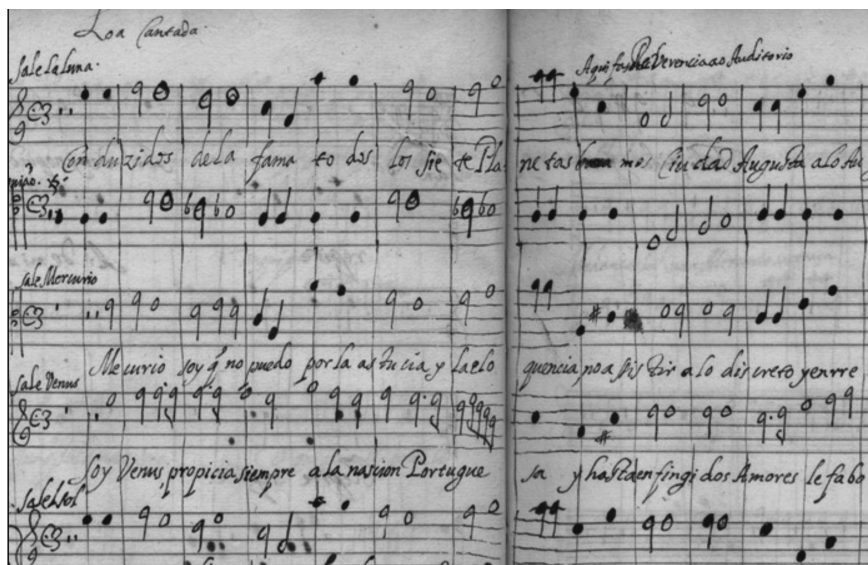 Loa Cantada.
Sale La Luna.
Aqui fas Reverencia ao Auditorio
Con duzidos de la fama to dos los sie te Pla
ne tas mos Ciu dad Augusta a lo Au
Sale Mercurio
Mercurio soy q̃ no puedo por la as tucia y la elo
quencia no a sis tir a lo dis creto y en rre
Sale Venus
Soy Venus, propicia siempre a la nascion Portugue
sa y hasta en fingi dos Amores le fabo
Sale el sol